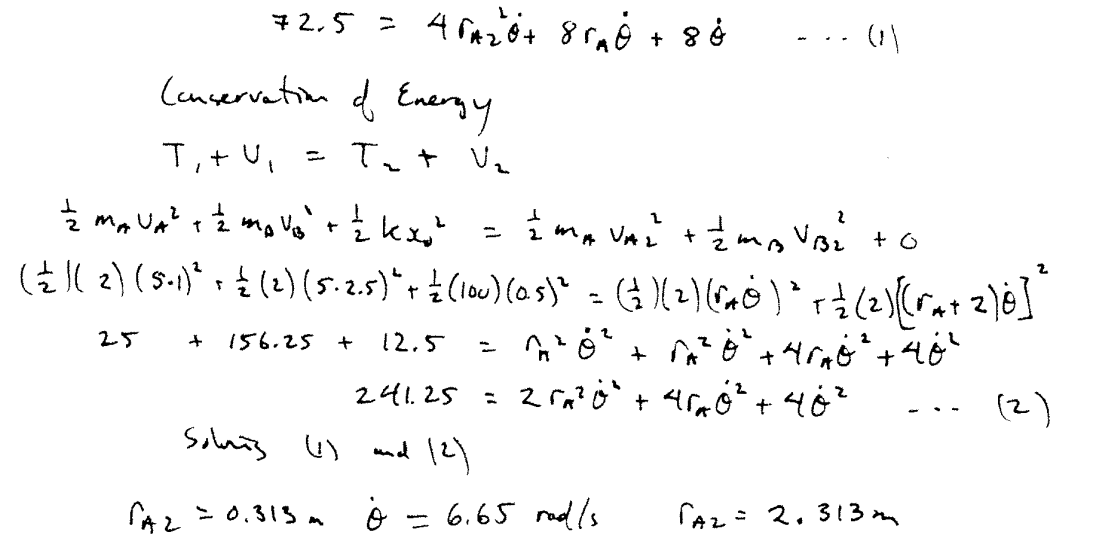 72.5 = 4 r_{A2}^2 θ̇ + 8 r_A θ̇ + 8 θ̇ --- (1)
Conservation of Energy
T_1 + V_1 = T_2 + V_2
1/2 m_A v_A^2 + 1/2 m_B v_B^2 + 1/2 k x_0^2 = 1/2 m_A v_{A2}^2 + 1/2 m_B v_{B2}^2 + 0
(1/2)(2)(5·1)^2 + 1/2 (2)(5·2.5)^2 + 1/2 (100)(0.5)^2 = (1/2)(2)(r_A θ̇)^2 + 1/2 (2)[(r_A + 2)θ̇]^2
25 + 156.25 + 12.5 = r_A^2 θ̇^2 + r_A^2 θ̇^2 + 4 r_A θ̇^2 + 4 θ̇^2
241.25 = 2 r_A^2 θ̇^2 + 4 r_A θ̇^2 + 4 θ̇^2 --- (2)
Solving (1) and (2)
r_{A2} = 0.313 m θ̇ = 6.65 rad/s r_{A2} = 2.313 m